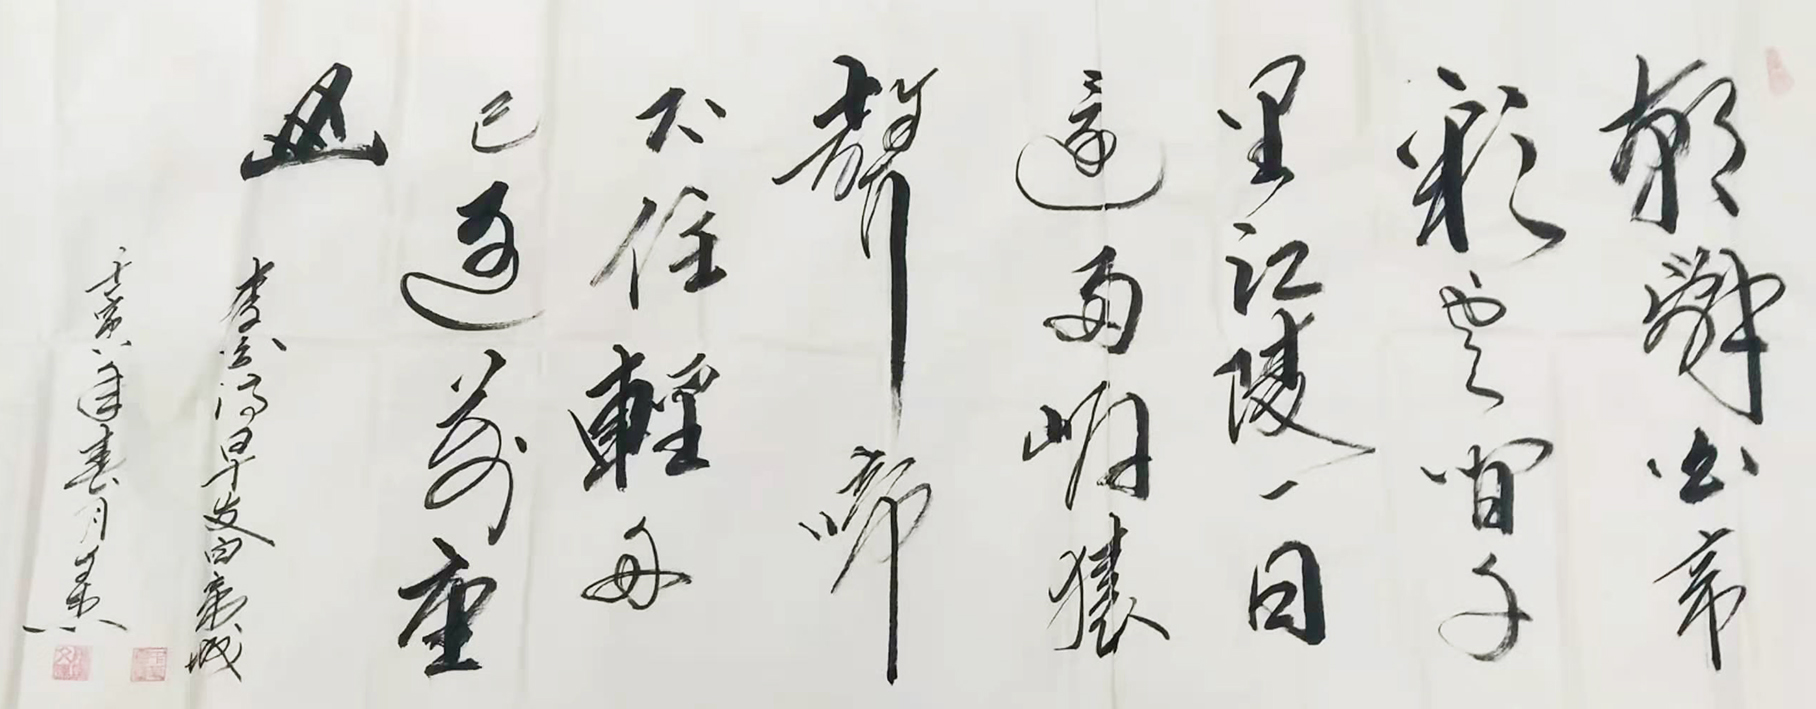 朝辭白帝
彩雲間千
里江陵一日
還兩岸猿
聲啼
不住輕舟
已過萬重
山
李白詩早发白帝城
壬寅年春月